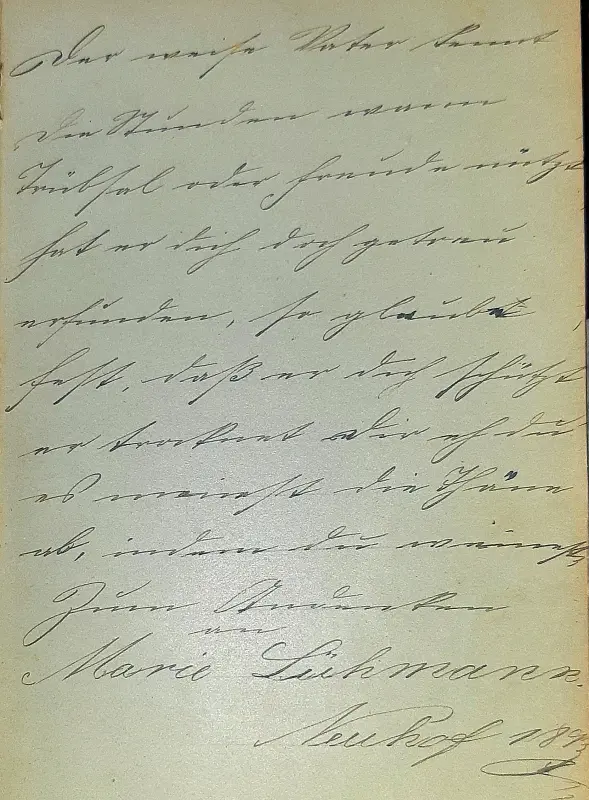 Der weise Vater kennt
die Stunden wann
Trübsal oder Freude nützt
hat er dich doch getreu
erfunden, so glaube
fest, daß er dich schützt
er trocknet Dir eh du
es meinst die Thäne
ab, indem du weinest,
Zum Andenken
an
Marie Lühmann.
Neuhof